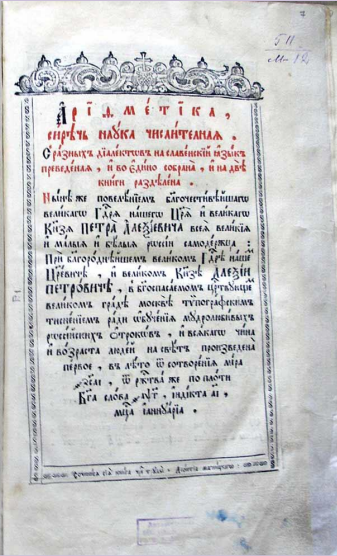 Аріѳме́тїка,
сирѣчь наука числителная.
С̾ ра́зныхъ дїале́ктѡвъ на славе́нскїй ѧ҆зы́къ
преведе́наѧ, и҆ во є҆ди́но собрана̀, и҆ на двѣ̀
кни́ги раздѣле́на.
Ны́нѣ же повелѣ́нїемъ благочести́вѣйшагѡ
вели́кагѡ Гд҇рѧ на́шегѡ Цр҃ѧ̀ и҆ вели́кагѡ
Кн҃зѧ ПЕТРА̀ А҆леѯі́евича всеѧ̀ вели́кїѧ
и҆ ма́лыѧ и҆ бѣ́лыѧ рѡссі́и самоде́ржца:
Прѝ благоро́днѣйшемъ вели́комъ Гд҇рѣ на́шемъ
Цр҃е́вичѣ, и҆ вели́комъ Кн҃зѣ А҆леѯі́и
Петро́вичѣ, в̾ бг҃оспаса́емомъ ца́рствующемъ
вели́комъ гра́дѣ москвѣ̀ тѷпогра́фскимъ
тисне́нїемъ ра́ди ѡ҆буче́нїѧ мудролюби́выхъ
рѡссі́йскихъ ѻ҆́трокѡвъ, и҆ всѧ́кагѡ чи́на
и҆ во́зраста люде́й на свѣ́тъ произведена̀
пе́рвое, в̾ лѣ́то ѿ сотворе́нїѧ мі́ра
҂зсаі, ѿ рж҇тва́ же по пло́ти
Бг҃а сло́ва ҂аѱг, і҆нді́кта аі,
мц҇а і҆аннуа́рїа.
Сочинисѧ сїѧ книга чрез труды Леѡнтїа магницкагѡ: